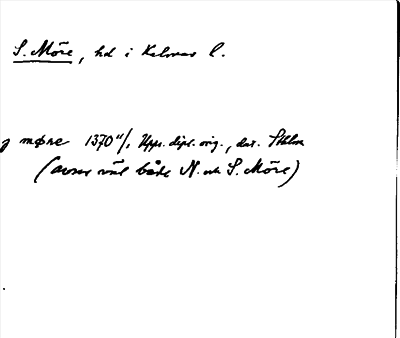 S. Möre, hd i Kalmar l.
j møne 1370 11/1 Upps. dipl. orig., dat. Sthlm
(avser väl både N. och S. Möre)